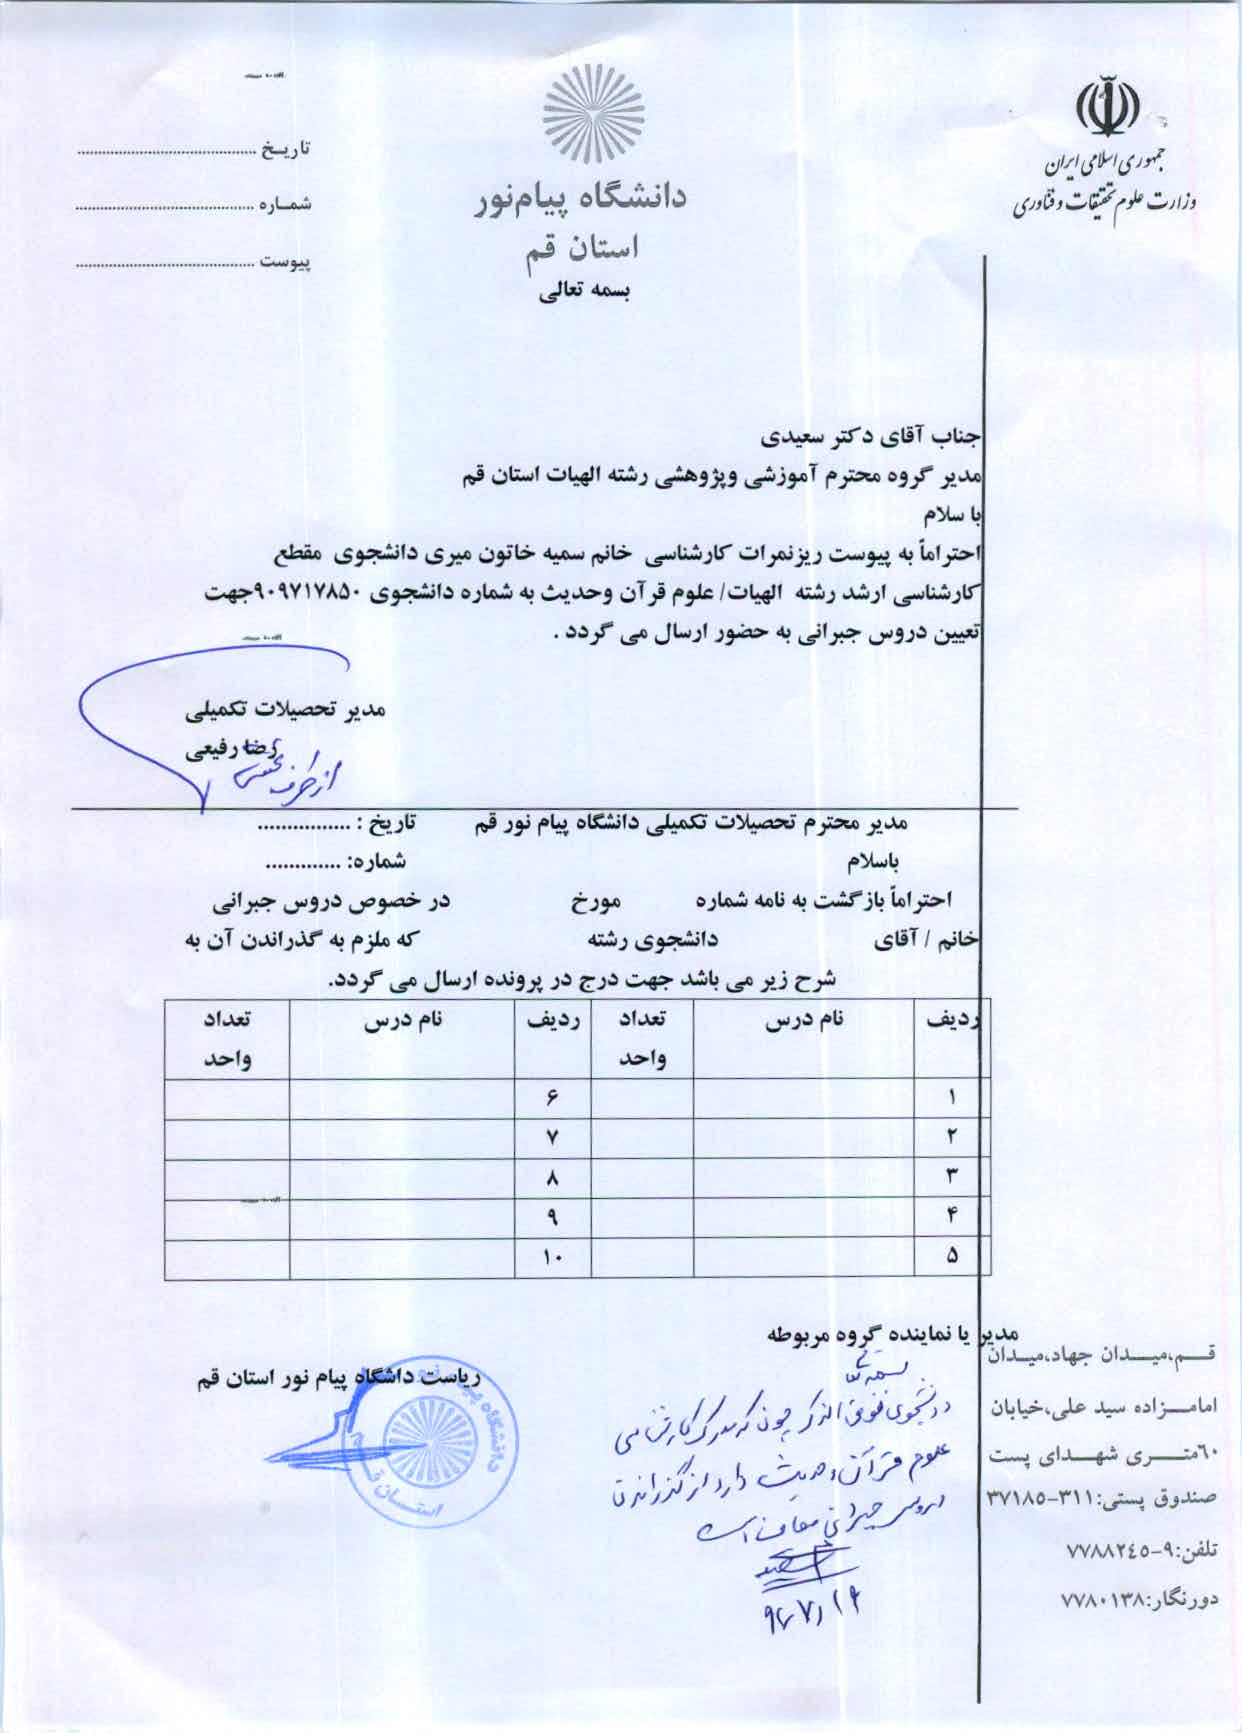 جمهوری اسلامی ایران
وزارت علوم تحقیقات و فناوری
دانشگاه پیام‌نور
استان قم
بسمه تعالی
تاریـخ ........................................
شمـاره ........................................
پیوست ........................................
جناب آقای دکتر سعیدی
مدیر گروه محترم آموزشی وپژوهشی رشته الهیات استان قم
با سلام
احتراماً به پیوست ریزنمرات کارشناسی خانم سمیه خاتون میری دانشجوی مقطع
کارشناسی ارشد رشته الهیات/ علوم قرآن وحدیث به شماره دانشجوی ۹۰۹۷۱۷۸۵۰جهت
تعیین دروس جبرانی به حضور ارسال می گردد .
مدیر تحصیلات تکمیلی
رضا رفیعی
از طرف
مدیر محترم تحصیلات تکمیلی دانشگاه پیام نور قم تاریخ : ................
باسلام شماره: .............
احتراماً بازگشت به نامه شماره مورخ در خصوص دروس جبرانی
خانم / آقای دانشجوی رشته که ملزم به گذراندن آن به
شرح زیر می باشد جهت درج در پرونده ارسال می گردد.
ردیف نام درس تعداد واحد ردیف نام درس تعداد واحد
۱ ۶
۲ ۷
۳ ۸
۴ ۹
۵ ۱۰
مدیر یا نماینده گروه مربوطه
ریاست دانشگاه پیام نور استان قم
دانشگاه پیام نور
استـان قـم
بسمه تعالی
دانشجوی فوق الذکر چون که مدرک کارشناسی
علوم قرآن و حدیث دارد از گذراندن
دروس جبرانی معاف است
قــم،میــدان جهاد،میـدان
امامـــزاده سید علی،خیابان
۶۰متــری شهــدای پست
صندوق پستی:۳۱۱-۳۷۱۸۵
تلفن:۹-۷۷۸۸۲٤٥
دورنگار:۷۷۸۰۱۳۸